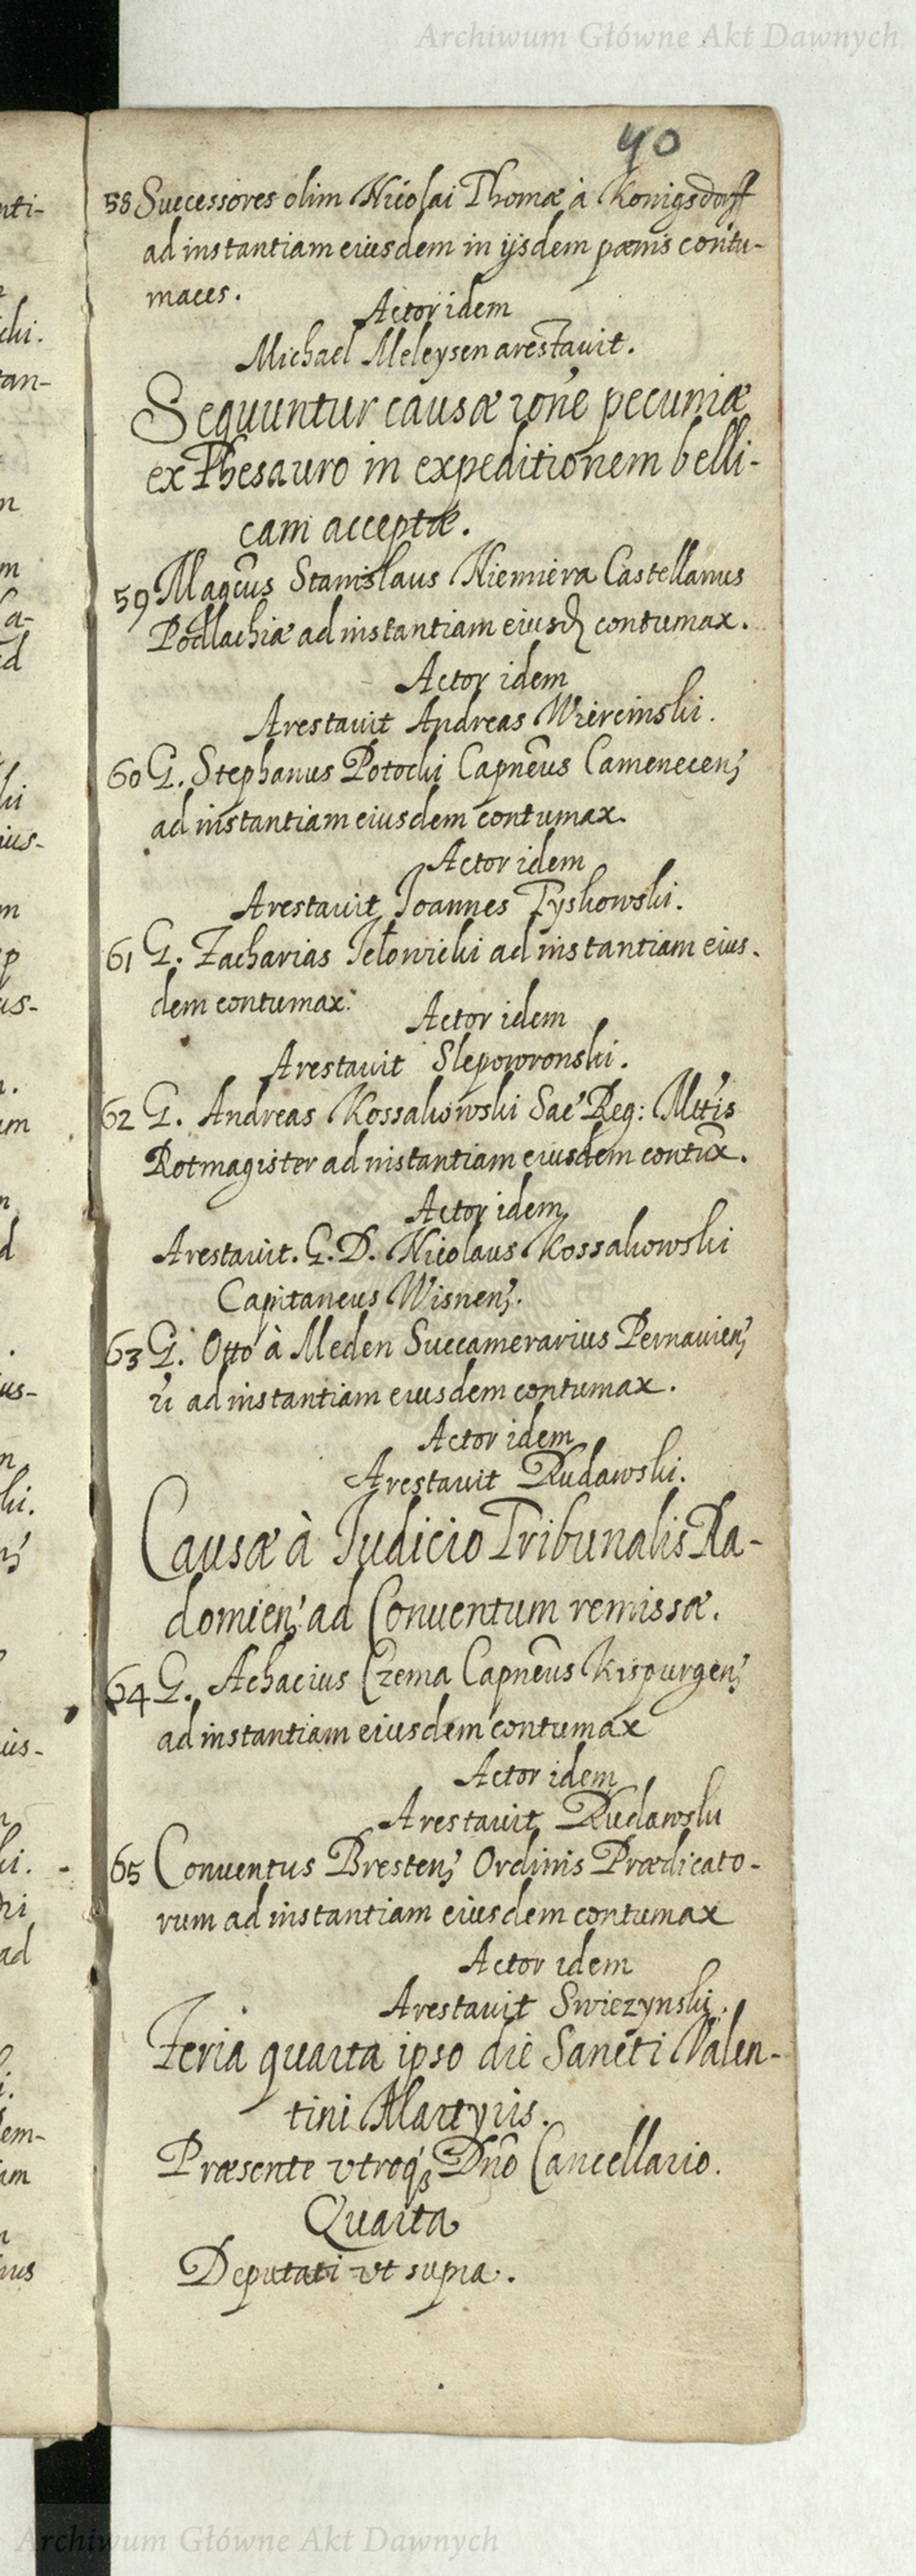 Archiwum Główne Akt Dawnych
40
58 Successores olim Nicolai Thomæ à Konigsdorff
ad instantiam eiusdem in ijsdem pœnis contu-
maces.
Actor idem
Michael Meleysen arestavit.
Sequuntur causæ rõne pecuniæ
ex Thesauro in expeditionem belli-
cam acceptæ.
59 Magcus Stanislaus Niemiera Castellanus
Podlachiæ ad instantiam eiusd contumax.
Actor idem
Arestavit Andreas Wiercinski.
60 G. Stephanus Potocki Capneus Camenecen;
ad instantiam eiusdem contumax.
Actor idem
Arestavit Joannes Tyskowski.
61 G. Zacharias Jełowicki ad instantiam eius.
dem contumax.
Actor idem
Arestavit Slepowronski.
62 G. Andreas Kossakowski Sae Reg: Mttis
Rotmagister ad instantiam eiusdem contũx.
Actor idem
Arestavit. G. D. Nicolaus Kossakowski
Capitaneus Wisnen;.
63 G. Otto à Meden Succamerarius Pernavien;
ad instantiam eiusdem contumax.
Actor idem
Arestavit Rudawski.
Causæ à Judicio Tribunalis Ra-
domien; ad Conventum remissæ.
64 G. Achacius Czema Capneus Kispurgen;
ad instantiam eiusdem contumax
Actor idem
Arestavit Rudawski
65 Conventus Bresten; Ordinis Prædicato-
rum ad instantiam eiusdem contumax
Actor idem
Arestavit Swiezynski.
Feria quarta ipso die Sancti Valen-
tini Martyris.
Præsente vtroq; Dno Cancellario.
Quarta
Deputati vt supra.
Archiwum Główne Akt Dawnych